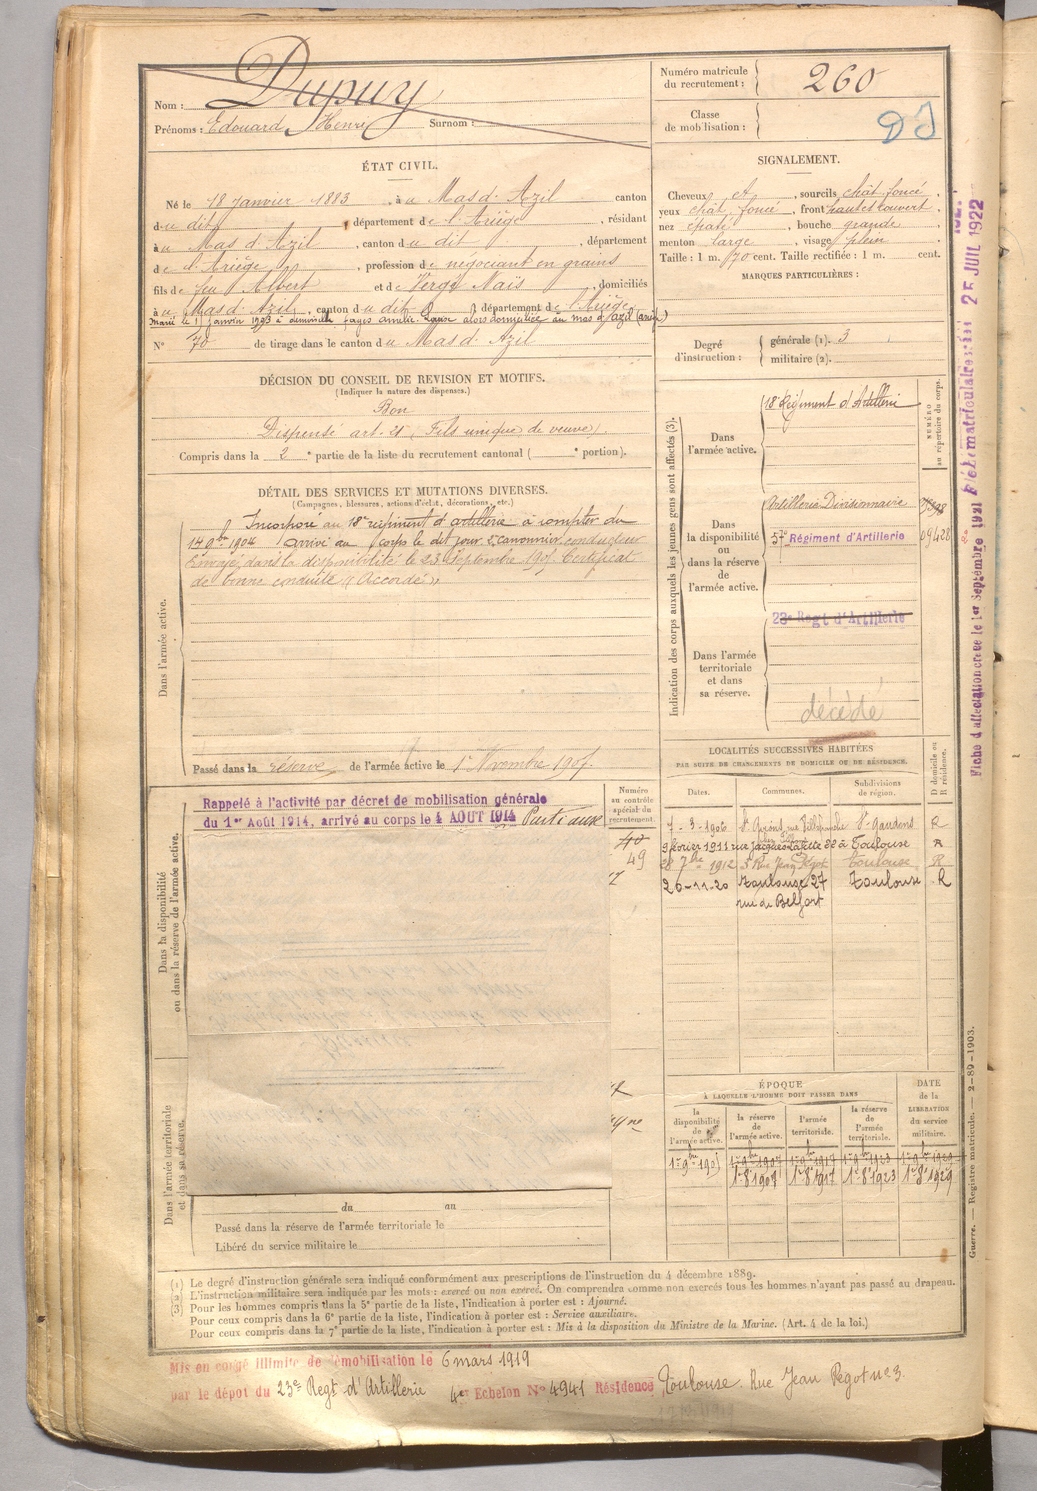 Nom : Dupuy
Prénoms : Edouard Henri Surnom :
Numéro matricule du recrutement : 260
Classe de mobilisation :
DJ
ÉTAT CIVIL.
Né le 18 janvier 1883, à u Mas d'Azil canton
d u dit, département de l'Ariège, résidant
à u Mas d'Azil, canton d u dit, département
de l'Ariège, profession de négociant en grains
fils de feu Albert et de Vergé Naïs, domiciliés
à u Mas d'Azil, canton d u dit département de l'Ariège
N° 70 de tirage dans le canton d u Mas d'Azil
SIGNALEMENT.
Cheveux et, sourcils chât foncé
yeux chât foncé, front haut et couvert
nez épaté, bouche grande
menton large, visage plein
Taille : 1 m. 70 cent. Taille rectifiée : 1 m. cent.
MARQUES PARTICULIÈRES :
Degré d'instruction : générale (1). 3
militaire (2).
DÉCISION DU CONSEIL DE REVISION ET MOTIFS.
(Indiquer la nature des dispenses.)
Bon
Dispensé art. 21 (Fils unique de veuve).
Compris dans la 2e partie de la liste du recrutement cantonal ( e portion).
DÉTAIL DES SERVICES ET MUTATIONS DIVERSES.
(Campagnes, blessures, actions d'éclat, décorations, etc.)
Dans l'armée active.
Incorporé au 18e régiment d'artillerie à compter du
14 9bre 1904 arrivé au corps le dit jour 2e canonnier conducteur
Envoyé dans la disponibilité le 23 Septembre 1905 Certificat
de bonne conduite « Accordé »
Passé dans la réserve de l'armée active le 1er Novembre 1907.
Indication des corps auxquels les jeunes gens sont affectés (3).
NUMÉRO au répertoire du corps.
Dans l'armée active.
18e Régiment d'Artillerie
Dans la disponibilité ou dans la réserve de l'armée active.
Artillerie Divisionnaire
57e Régiment d'Artillerie
09428
Dans l'armée territoriale et dans sa réserve.
23e Regt d'Artillerie
décédé
Dans la disponibilité ou dans la réserve de l'armée active.
Rappelé à l'activité par décret de mobilisation générale
du 1er Août 1914, arrivé au corps le 4 AOUT 1914 Parti aux
Numéro au contrôle spécial du recrutement.
40
49
LOCALITÉS SUCCESSIVES HABITÉES
PAR SUITE DE CHANGEMENTS DE DOMICILE OU DE RÉSIDENCE.
Dates. Communes. Subdivisions de région. D domicile ou R résidence.
7-3-1906 St Gaudens R
9 février 1911 rue Jacques Lafitte 22 à Toulouse R
28 7bre 1912 3 Rue Jean Pégot Toulouse R
20-11-20 Toulouse 27 Toulouse R
rue de Belfort
ÉPOQUE
À LAQUELLE L'HOMME DOIT PASSER DANS
la disponibilité de l'armée active.
la réserve de l'armée active.
l'armée territoriale.
la réserve de l'armée territoriale.
DATE de la LIBÉRATION du service militaire.
1er 9bre 1905 1er 9bre 1907 1er 9bre 1917 1er 9bre 1923 1er 9bre 1929
1er 8e 1907 1er 8e 1917 1er 8e 1923 1er 8e 1929
Dans l'armée territoriale et dans sa réserve.
du au
Passé dans la réserve de l'armée territoriale le
Libéré du service militaire le
(1) Le degré d'instruction générale sera indiqué conformément aux prescriptions de l'instruction du 4 décembre 1889.
(2) L'instruction militaire sera indiquée par les mots : exercé ou non exercé. On comprendra comme non exercés tous les hommes n'ayant pas passé au drapeau.
(3) Pour les hommes compris dans la 5e partie de la liste, l'indication à porter est : Ajourné.
Pour ceux compris dans la 6e partie de la liste, l'indication à porter est : Service auxiliaire.
Pour ceux compris dans la 7e partie de la liste, l'indication à porter est : Mis à la disposition du Ministre de la Marine. (Art. 4 de la loi.)
Mis en congé illimité de démobilisation le 6 mars 1919
par le dépôt du 23e Regt d'Artillerie 4e Echelon N° 4941 Résidence Toulouse. Rue Jean Pégot n° 3.
Guerre. — Registre matricule. — 2-89-1903.
25 JUIL 1922